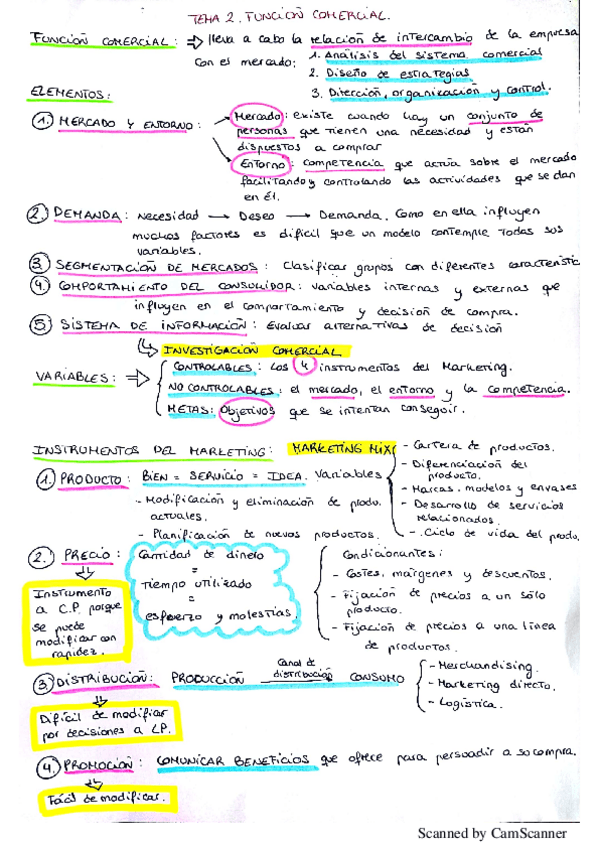 TEMA 2. FUNCIÓN COMERCIAL.
FUNCIÓN COMERCIAL: ⇒ lleva a cabo la relación de intercambio de la empresa
con el mercado: 1. Análisis del sistema comercial
2. Diseño de estrategias
3. Dirección, organización y control.
ELEMENTOS:
1. MERCADO Y ENTORNO:
Mercado: existe cuando hay un conjunto de
personas que tienen una necesidad y están
dispuestos a comprar
Entorno: competencia que actúa sobre el mercado
facilitando y controlando las actividades que se dan
en él.
2. DEMANDA: Necesidad → Deseo → Demanda. Como en ella influyen
muchos factores es difícil que un modelo contemple todas sus
variables.
3. SEGMENTACIÓN DE MERCADOS: Clasificar grupos con diferentes característic
4. COMPORTAMIENTO DEL CONSUMIDOR: variables internas y externas que
influyen en el comportamiento y decisión de compra.
5. SISTEMA DE INFORMACIÓN: Evaluar alternativas de decisión
INVESTIGACIÓN COMERCIAL
VARIABLES: ⇒
CONTROLABLES: Los 4 instrumentos del Marketing.
NO CONTROLABLES: el mercado, el entorno y la competencia.
METAS: Objetivos que se intentan conseguir.
INSTRUMENTOS DEL MARKETING: MARKETING MIX
1. PRODUCTO: BIEN = SERVICIO = IDEA. Variables
- Modificación y eliminación de produ.
actuales.
- Planificación de nuevos productos.
- Cartera de productos.
- Diferenciación del
producto.
- Marcas, modelos y envases
- Desarrollo de servicios
relacionados.
- Ciclo de vida del produ.
2. PRECIO:
Instrumento
a C.P. porque
se puede
modificar con
rapidez.
Cantidad de dinero
=
tiempo utilizado
=
esfuerzo y molestias.
Condicionantes:
- Costes, márgenes y descuentos.
- Fijación de precios a un sólo
producto.
- Fijación de precios a una línea
de productos.
3. DISTRIBUCIÓN: PRODUCCIÓN Canal de distribución CONSUMO
- Merchandising.
- Marketing directo.
- Logística.
Difícil de modificar
por decisiones a LP.
4. PROMOCIÓN: COMUNICAR BENEFICIOS que ofrece para persuadir a su compra.
Fácil de modificar.
Scanned by CamScanner